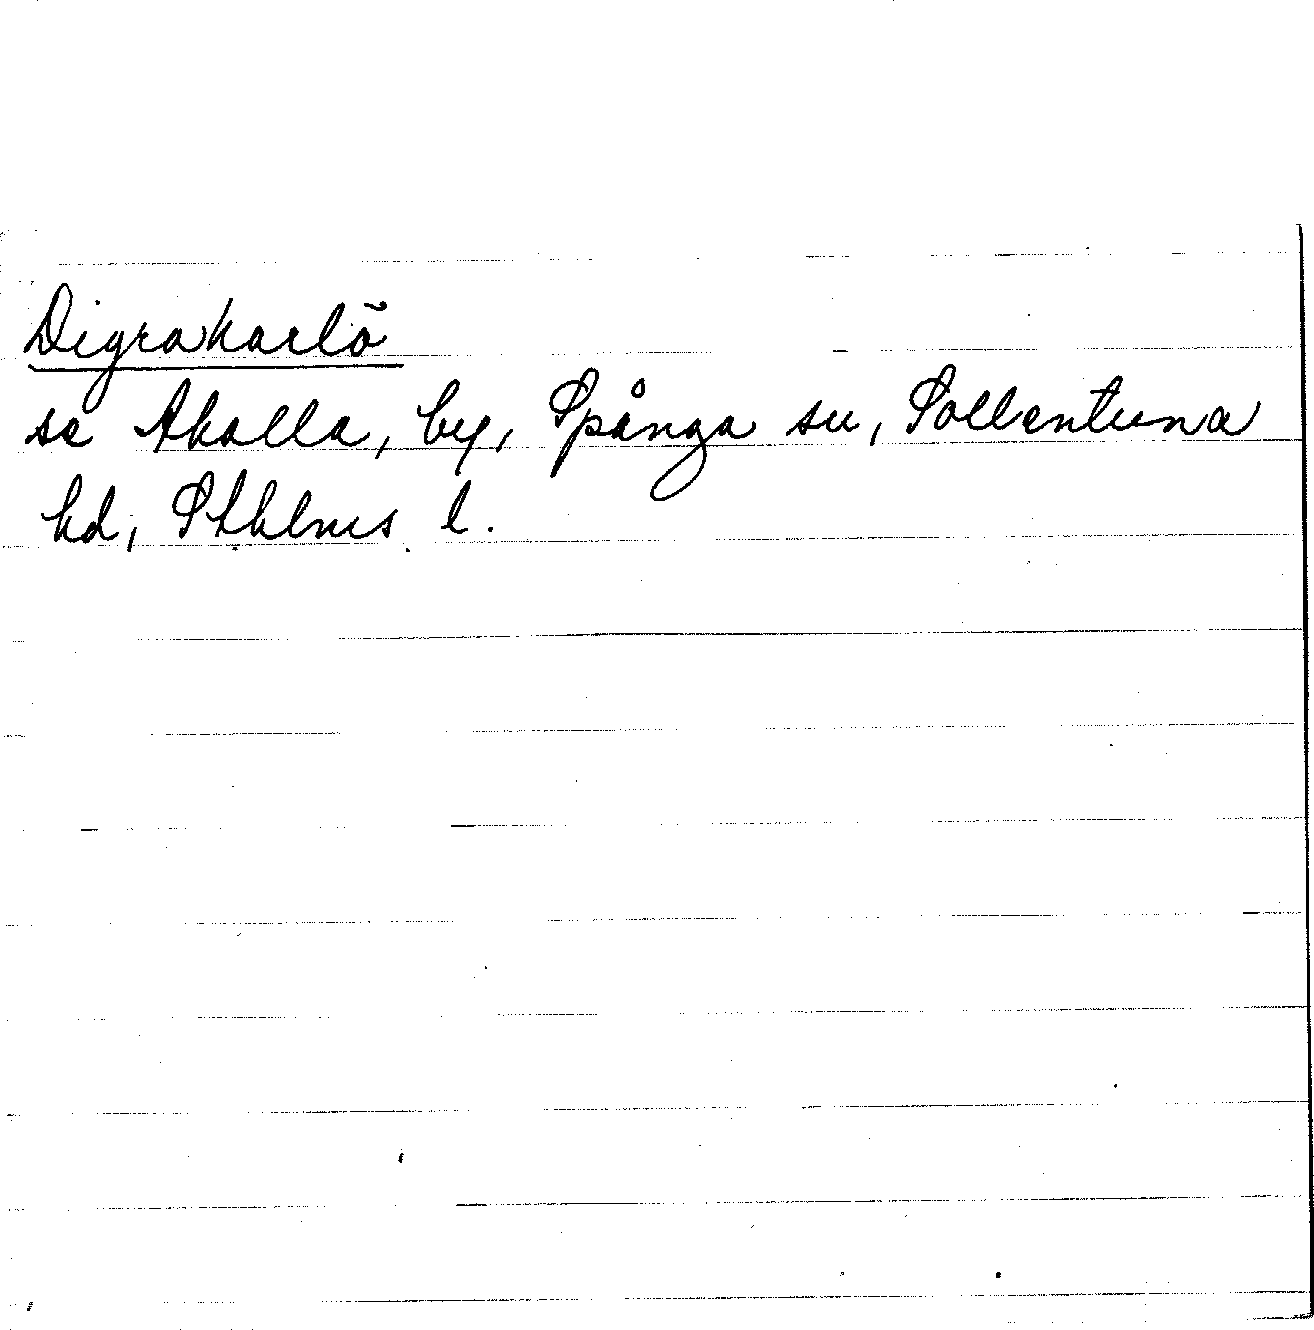 Digrakarlö
se Akalla, by, Spånga sn, Sollentuna
hd, Sthlms l.